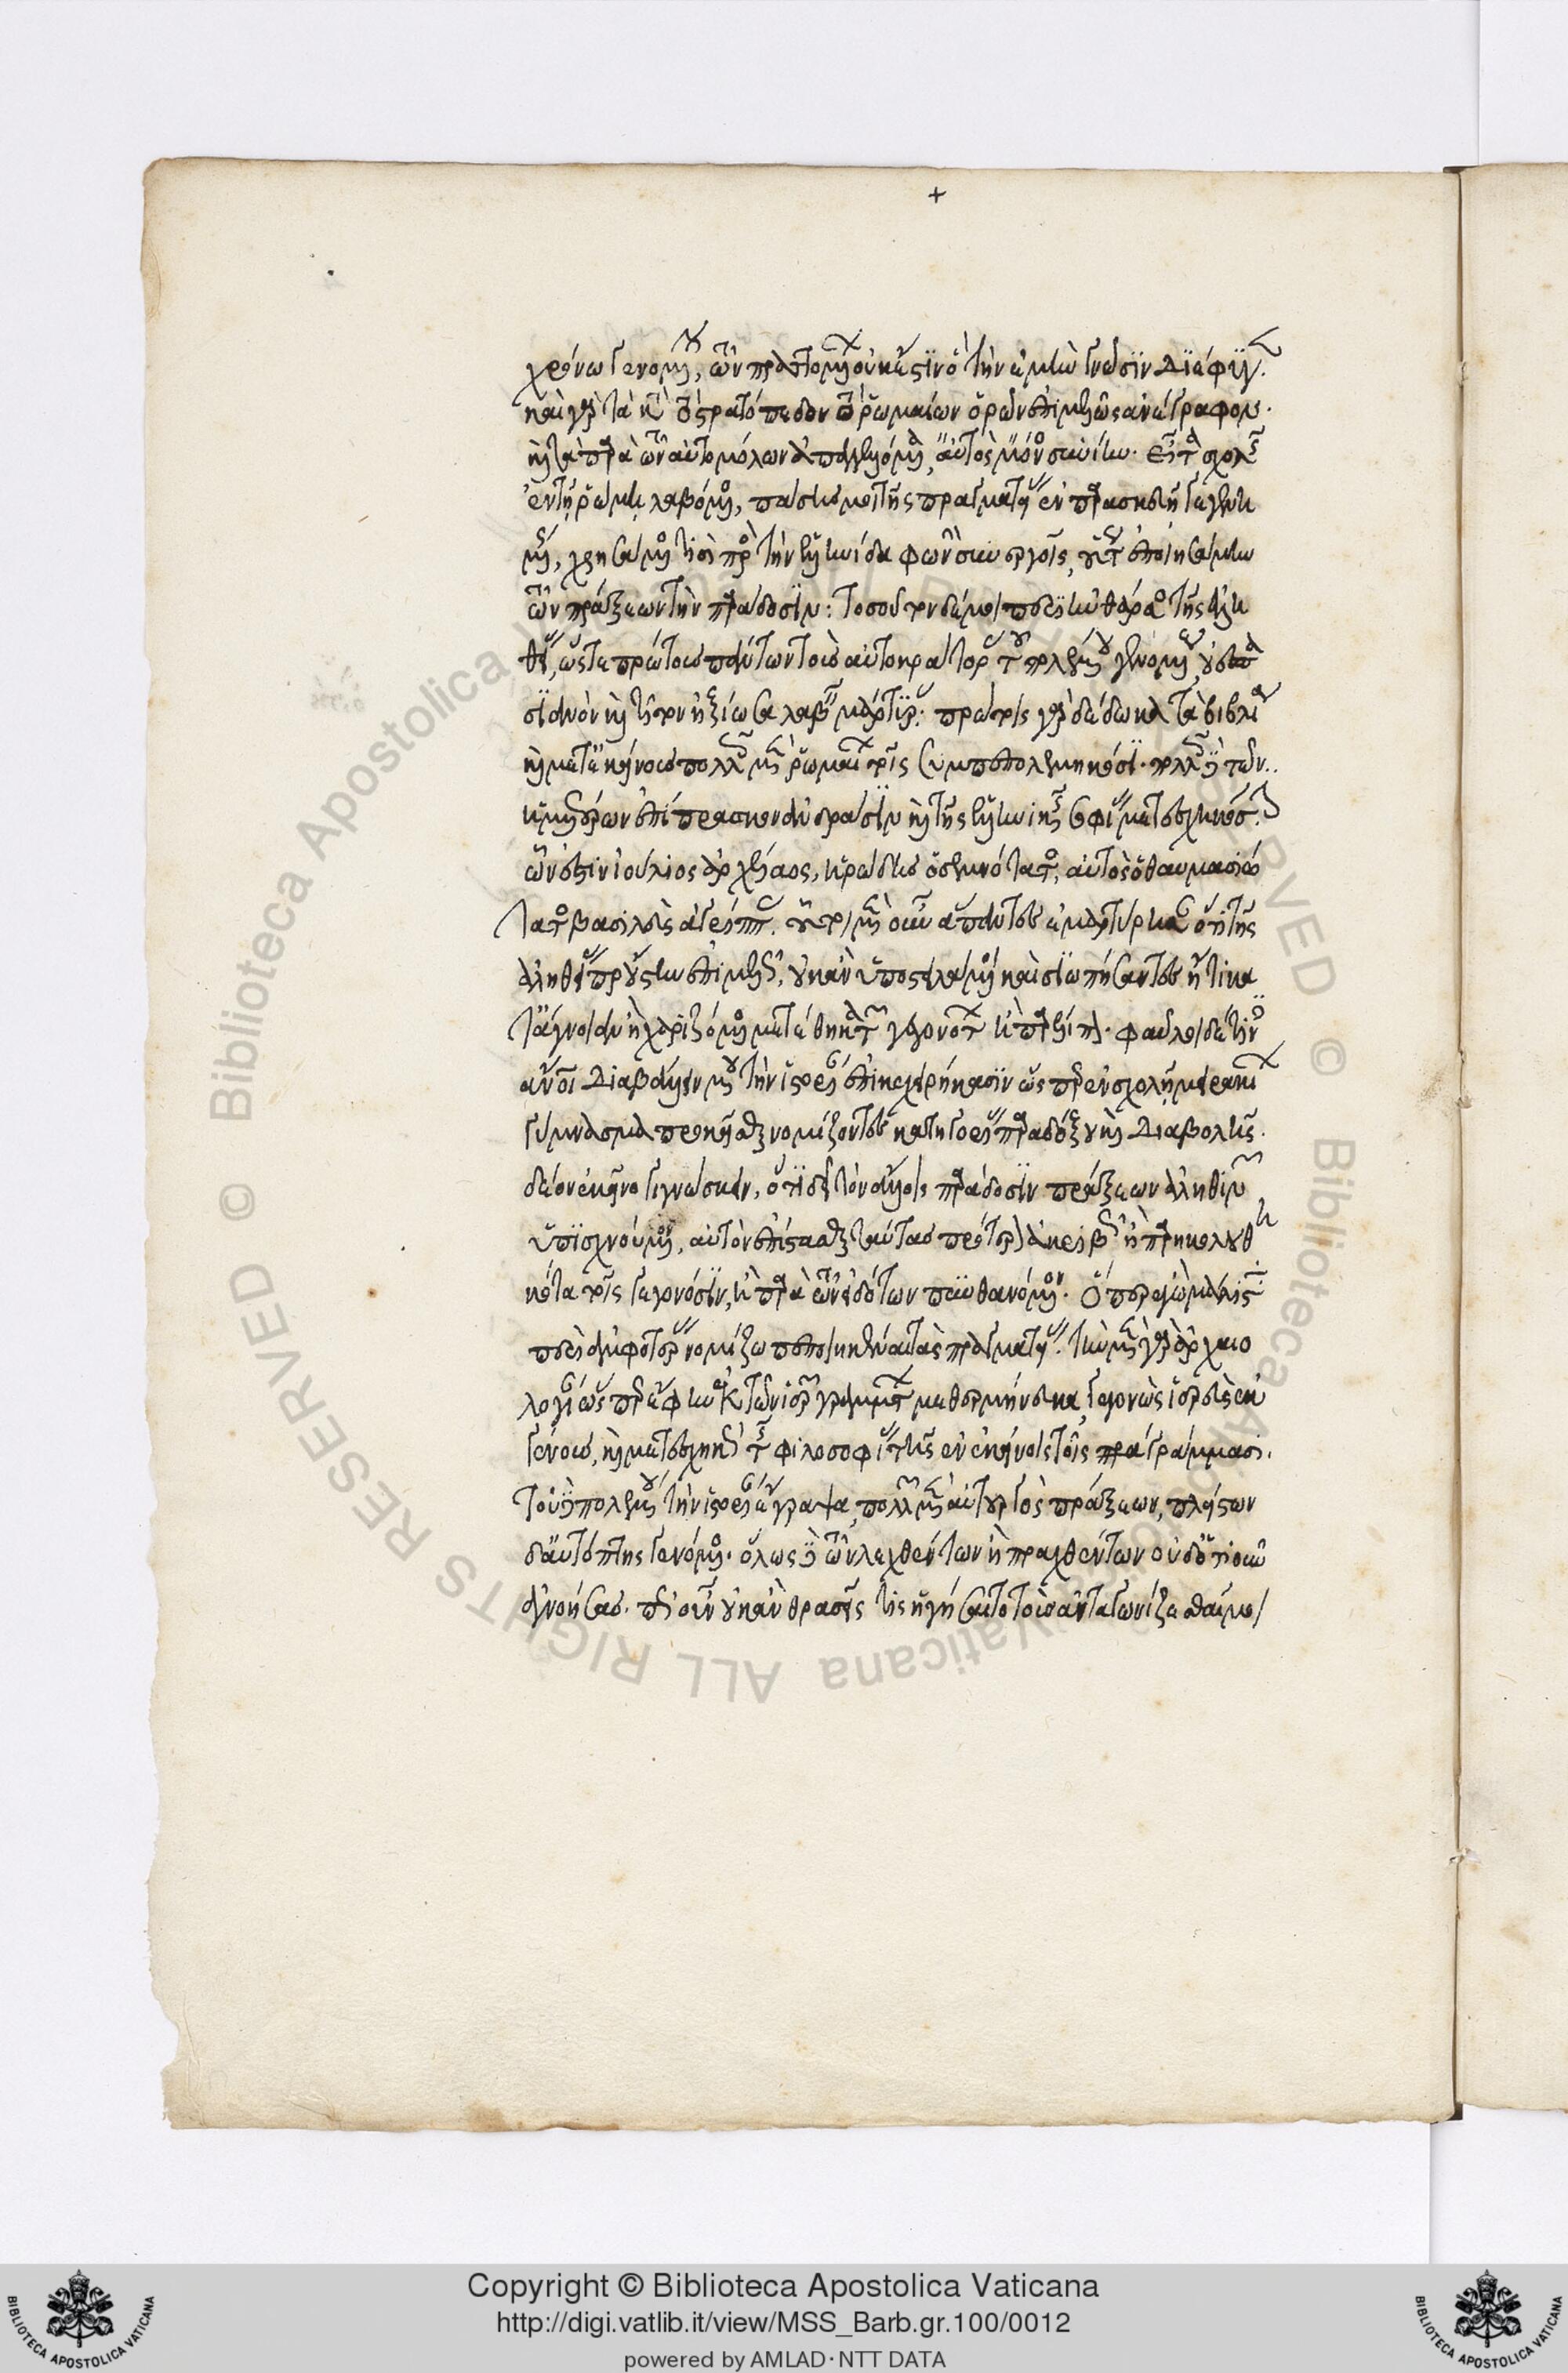 +
χρόνω γενομένου, τῶν πραττομένων οὐκ ἔστιν ὃ τὴν ἐμὴν γνῶσιν διέφυγεν.
καὶ γὰρ τὰ κατὰ τὸ στρατόπεδον τὸ ῥωμαίων ὁρῶν ἐπιμελῶς ἀνέγραφον.
καὶ τὰ παρὰ τῶν αὐτομόλων ἀπαγγελλόμενα, αὐτὸς μόνος συνίην. εἶτα σχολῆς
ἐν τῇ ῥώμῃ λαβόμενος, πάσης μοι τῆς πραγματείας ἐν παρασκευῇ γεγενη
μένης, χρησάμενός τισι πρὸς τὴν ἑλληνίδα φωνὴν συνεργοῖς, οὕτως ἐποιησάμην
τῶν πράξεων τὴν παράδοσιν: τοσοῦτον δέ μοι περιῆν θάρσος τῆς ἀλη
θείας, ὥστε πρώτους πάντων τοὺς αὐτοκράτορας τοῦ πολέμου γενομένους οὐεσπα
σιανὸν καὶ τίτον ἠξίωσα λαβεῖν μάρτυρας: πρώτοις γὰρ δέδωκα τὰ βιβλία
καὶ μετ' ἐκείνους πολλοῖς μὲν ῥωμαίων τοῖς συμπεπολεμηκόσι. πολλοῖς δὲ τῶν
ἡμετέρων ἐπίπρασκον ἀνδράσιν καὶ τῆς ἑλληνικῆς σοφίας μετεσχηκόσιν.
ὧν ἐστιν ἰούλιος ἀρχέλαος, ἡρώδης ὁ σεμνότατος, αὐτὸς ὁ θαυμασιώ
τατος βασιλεὺς ἀγρίππας. οὗτοι μὲν οὖν ἅπαντες ἐμαρτύρησαν ὅτι τῆς
ἀληθείας προύστην ἐπιμελῶς, οὐκ ἂν ὑποστειλάμενοι καὶ σιωπήσαντες εἴ τι κα
τ' ἄγνοιαν ἢ χαριζόμενος μετέθηκα τῶν γεγονότων ἢ παρέλιπον. φαῦλοι δέ τινες
ἄνθρωποι διαβάλλειν μου τὴν ἱστορίαν ἐπικεχειρήκασιν ὥσπερ ἐν σχολῇ μειρακίων
γύμνασμα προκεῖσθαι νομίζοντες κατηγορίας παραδόξου καὶ διαβολῆς.
δέον ἐκεῖνο γιγνώσκειν, ὅτι δεῖ τὸν ἄλλοις παράδοσιν πράξεων ἀληθινῶν
ὑπισχνούμενον, αὐτὸν ἐπίστασθαι ταύτας πρότερον ἀκριβῶς ἢ παρηκολουθη
κότα τοῖς γεγονόσιν, ἢ παρὰ τῶν εἰδότων πυνθανόμενον. ὅπερ ἐγὼ μάλιστα
περὶ ἀμφοτέρας νομίζω πεποιηκέναι τὰς πραγματείας. τὴν μὲν γὰρ ἀρχαιο
λογίαν ὥσπερ ἔφην ἐκ τῶν ἱερῶν γραμμάτων μεθερμήνευκα, γεγονὼς ἱερεὺς ἐκ
γένους, καὶ μετεσχηκὼς τῆς φιλοσοφίας τῆς ἐν ἐκείνοις τοῖς γράμμασι.
τοῦ δὲ πολέμου τὴν ἱστορίαν ἔγραψα, πολλῶν μὲν αὐτουργὸς πράξεων, πλείστων
δ' αὐτόπτης γενόμενος. ὅλως δὲ τῶν λεχθέντων ἢ πραχθέντων οὐδ' ὁτιοῦν
ἀγνοήσας. πῶς οὖν οὐκ ἂν θρασεῖς τις ἡγήσαιτο τοὺς ἀνταγωνίζεσθαί μοι
Copyright © Biblioteca Apostolica Vaticana
http://digi.vatlib.it/view/MSS_Barb.gr.100/0012
powered by AMLAD·NTT DATA